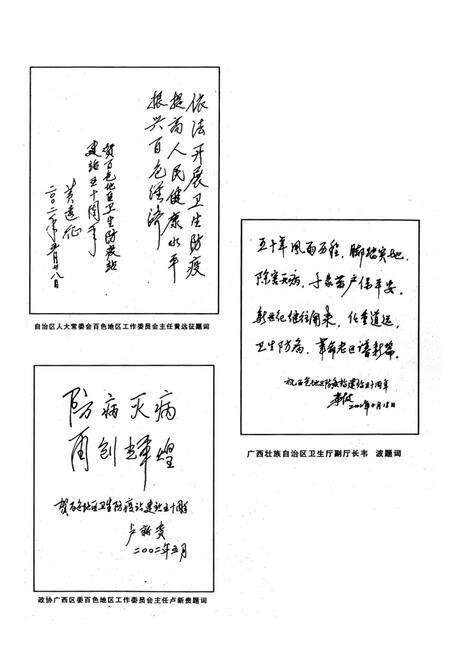 依法开展卫生防疫
提高人民健康水平
振兴百色经济
贺百色地区卫生防疫站
建站五十周年
黄远征
二〇〇二年五月廿八日
自治区人大常委会百色地区工作委员会主任黄远征题词
防病灭病
再创辉煌
贺百色地区卫生防疫站建站五十周年
卢新贵
二〇〇二年五月
政协广西区委百色地区工作委员会主任卢新贵题词
五十年风雨历程，脚踏实地，
除害灭病，千家万户保平安。
新世纪继往开来，任重道远，
卫生防病，革命老区谱新篇。
祝百色地区防疫站建站五十周年
韦波
广西壮族自治区卫生厅副厅长韦 波题词